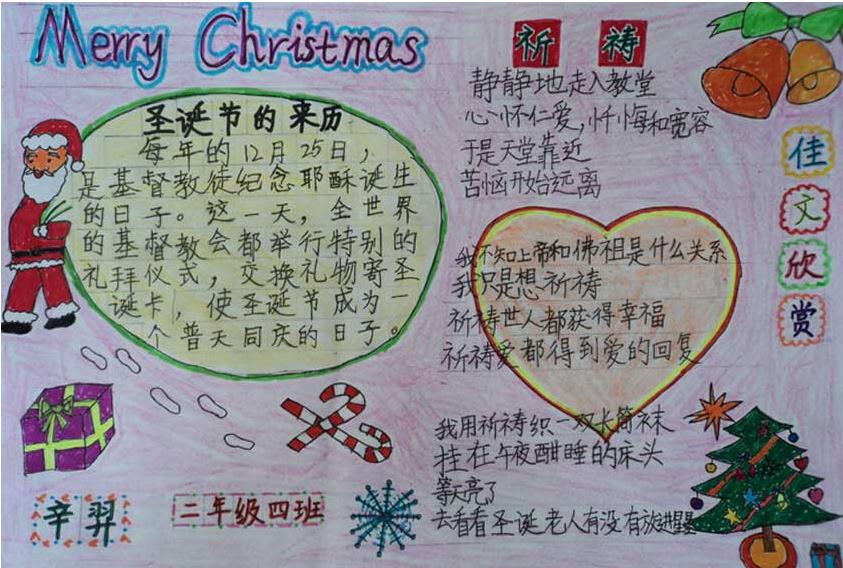 Merry Christmas
圣诞节的来历
每年的12月25日，
是基督教徒纪念耶酥诞生
的日子。这一天，全世界
的基督教会都举行特别的
礼拜仪式，交换礼物寄圣
诞卡，使圣诞节成为一
个普天同庆的日子。
辛羿
二年级四班
祈祷
静静地走入教堂
心怀仁爱，忏悔和宽容
于是天堂靠近
苦恼开始远离
我不知上帝和佛祖是什么关系
我只是想祈祷
祈祷世人都获得幸福
祈祷爱都得到爱的回复
我用祈祷织一双长筒袜
挂在午夜酣睡的床头
等天亮了
去看看圣诞老人有没有放进星星
佳文欣赏